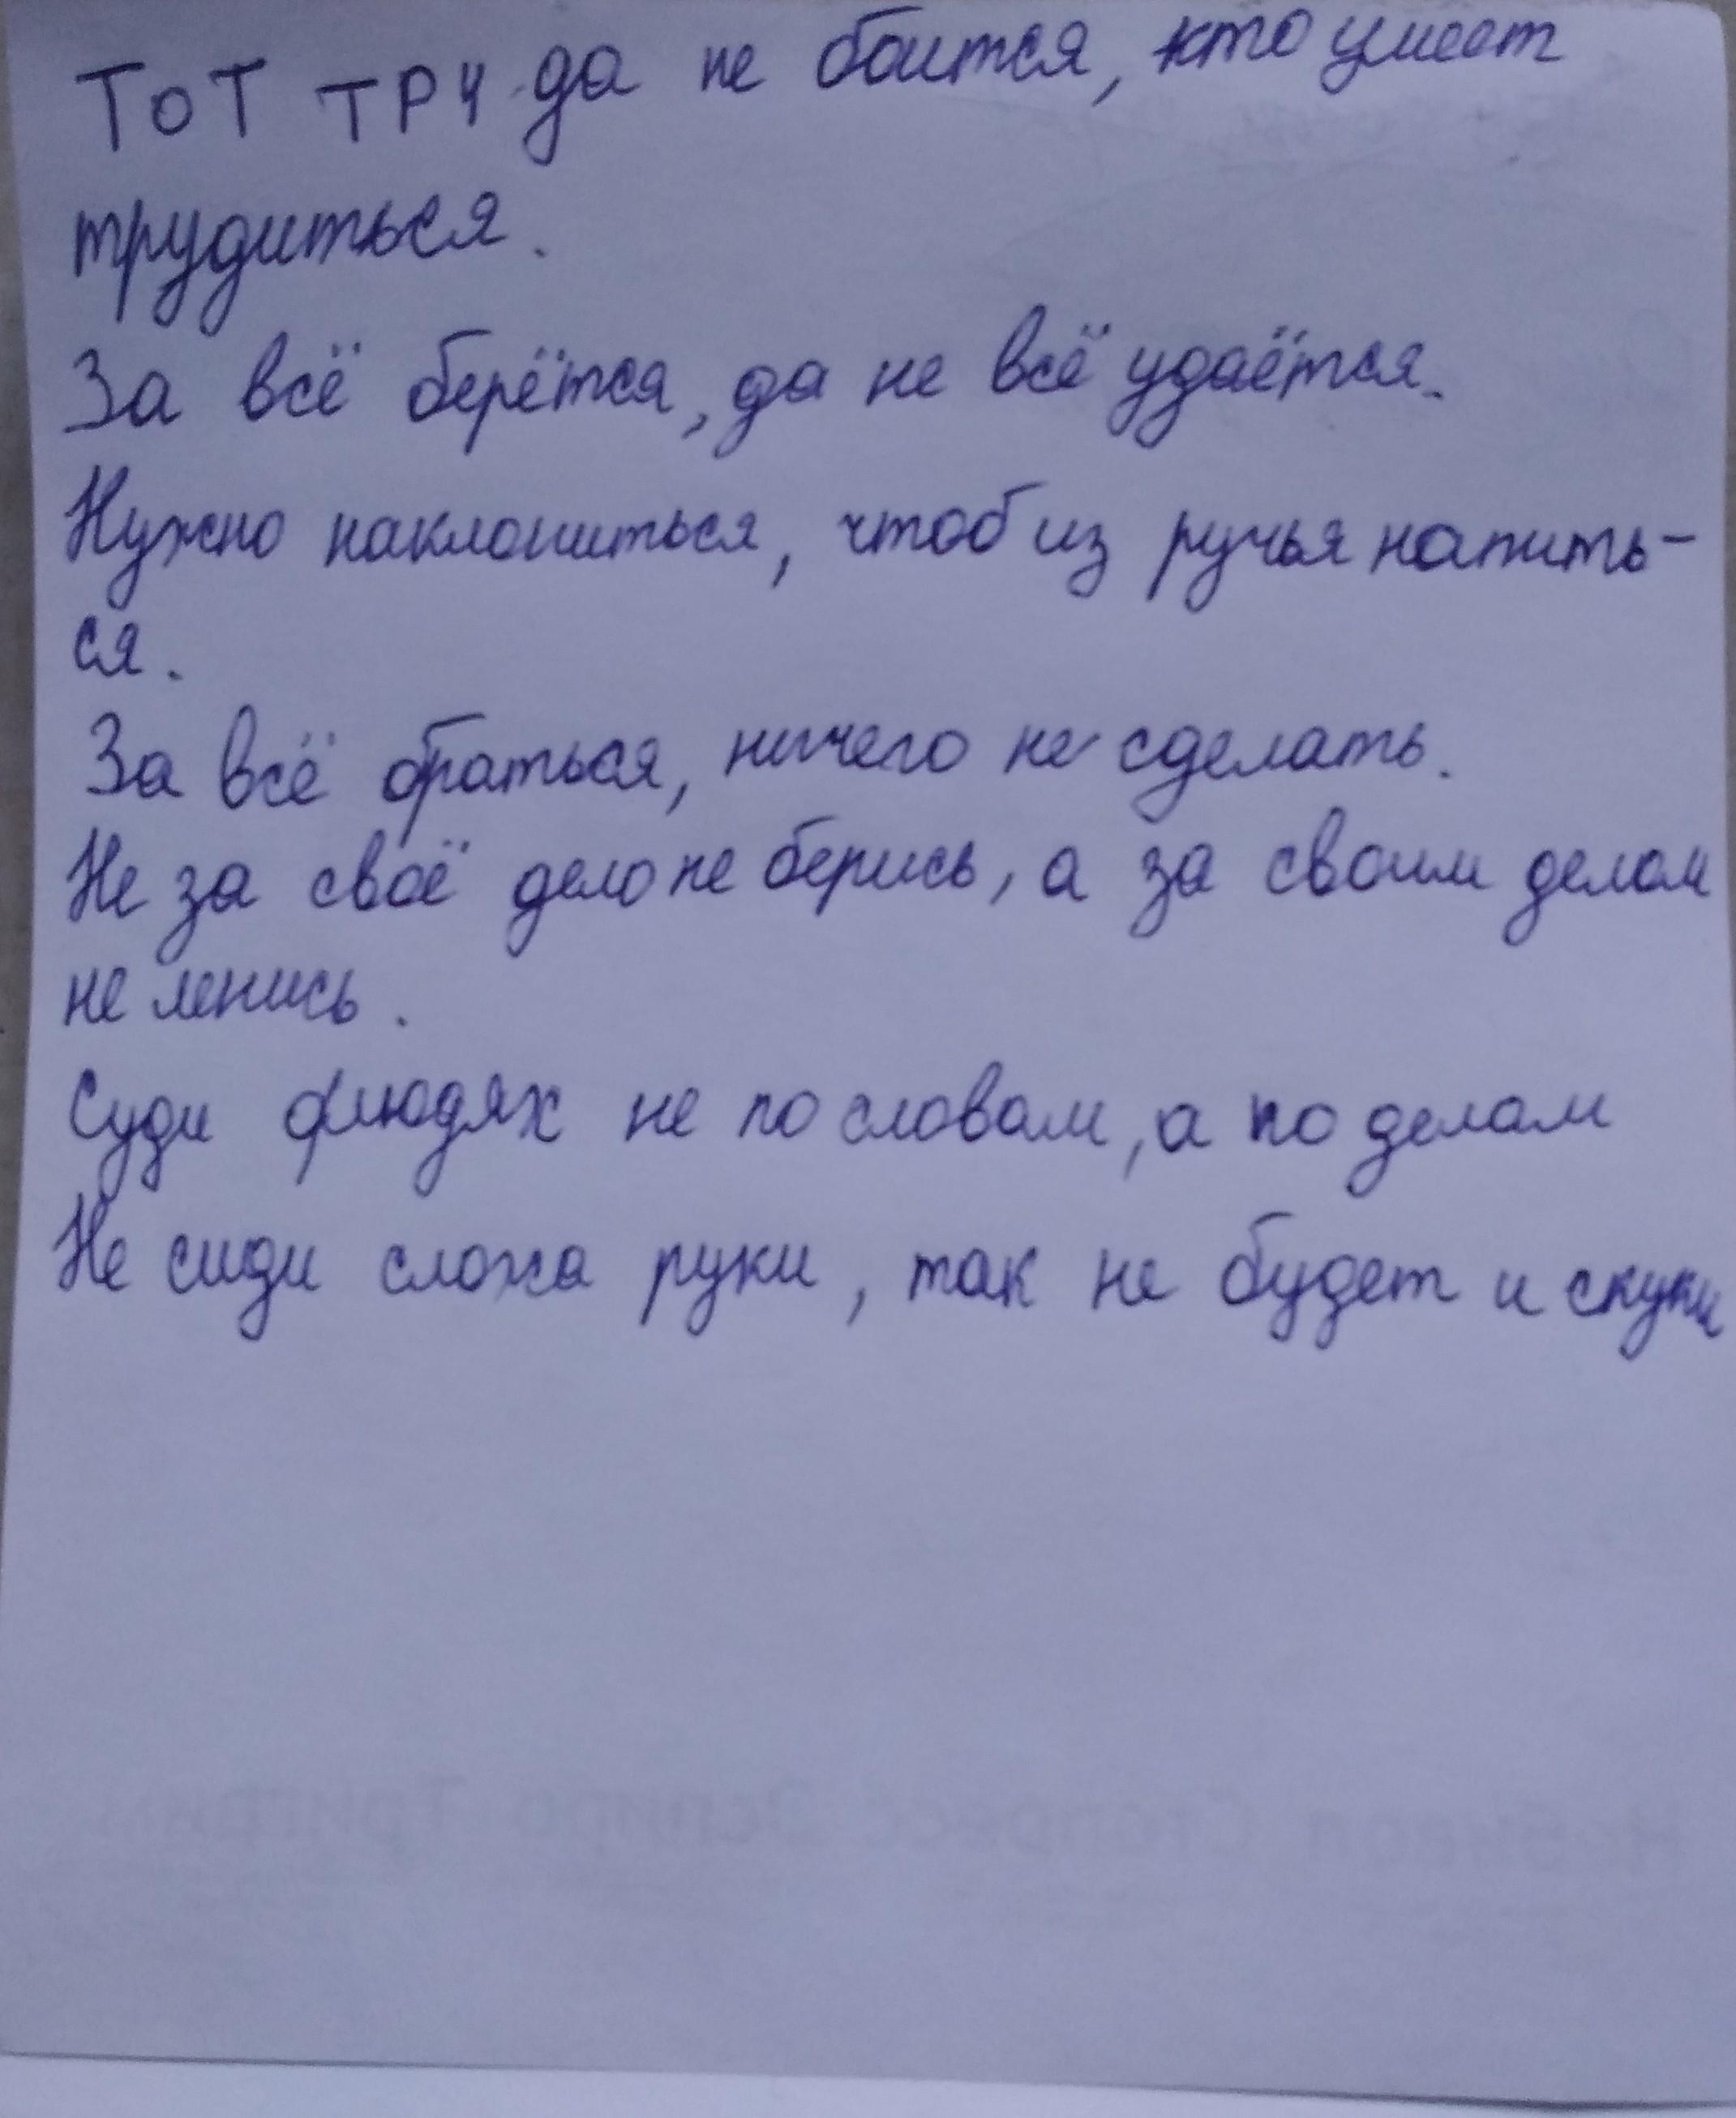 Тот труда не боится, кто умеет
трудиться.
За всё берётся, да не всё удаётся.
Нужно наклониться, чтоб из ручья напить-
ся.
За всё браться, ничего не сделать.
Не за своё дело не берись, а за своим делом
не ленись.
Суди о людях не по словам, а по делам
Не сиди сложа руки, так не будет и скуки